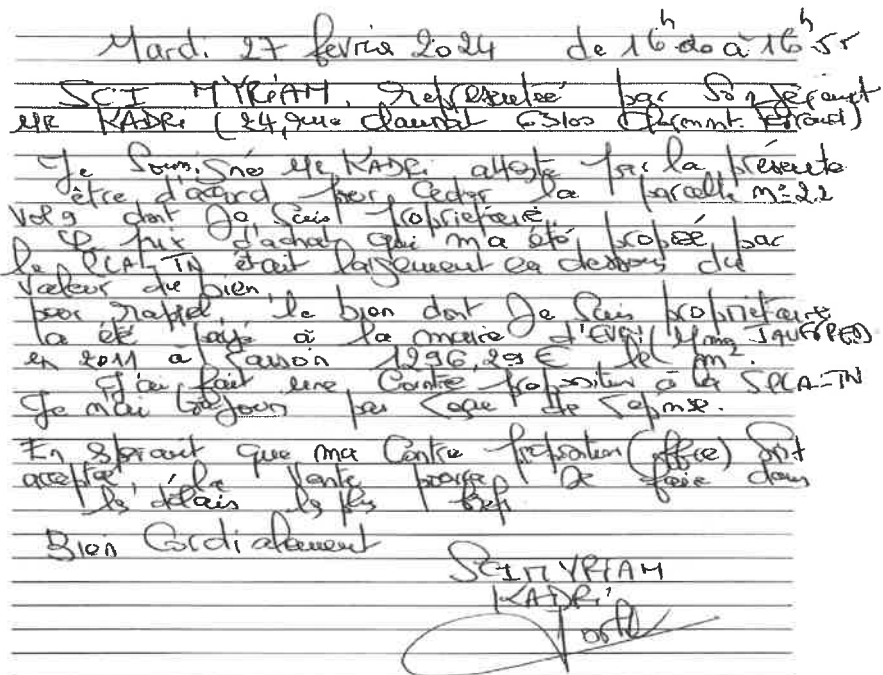 Mardi 27 fevrier 2024 de 16h00 à 16h55
SCI MYRIAM, représentée par son gérant
MR KADRI (24, rue 63100 Clermont-Ferrand)
Je soussigné MR KADRi atteste par la présente
être d'accord pour ceder la parcelle n°22
vol 9 dont Je suis proprietaire.
Le prix d'achat qui m'a été proposé par
la était largement en dessous du
valeur du bien,
pour rappel, le bien dont Je suis proprietaire
a été payé à la mairie d'
en 2011 à raison 1296,29 € le m².
J'ai fait une contre proposition à la SPLA-IN
Je n'ai toujours pas reçue de reponse.
En esperant que ma contre proposition (offre) soit
acceptée, la vente pourra se faire dans
les délais les plus bref.
Bien Cordialement
SCI MYRIAM
KADRi